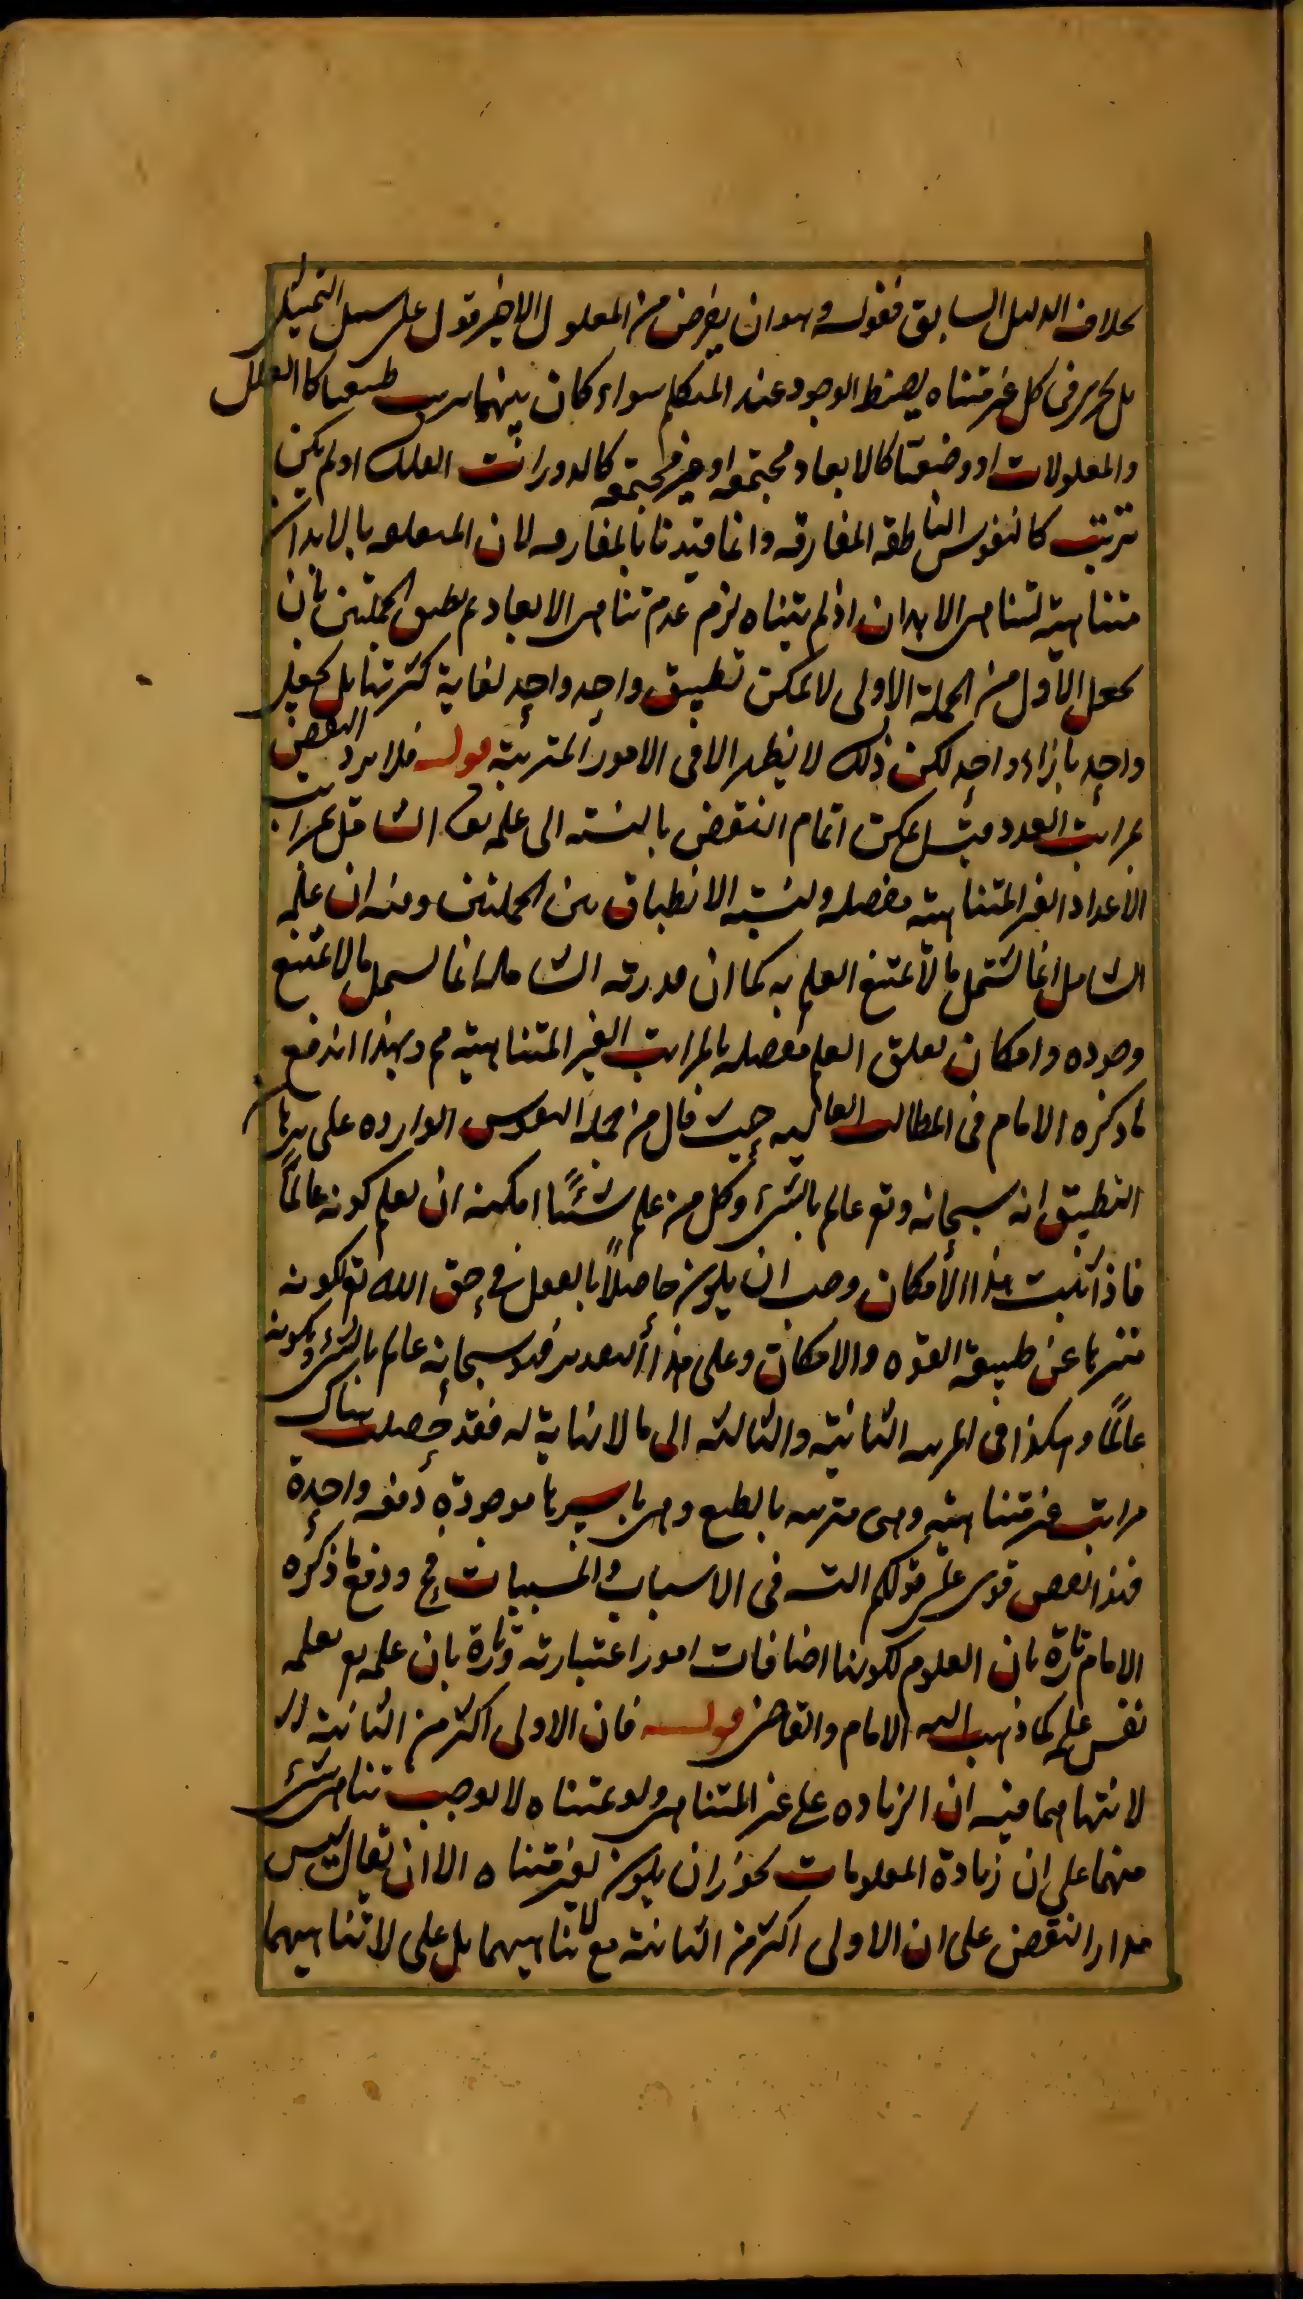 بخلاف الدليل السابق فقوله وهو ان يفرض من المعلول الاخير قول على سبيل التمثيل
بل يجري في كل غير متناه يضبط الوجود عند المتكلم سواء كان بينهما ترتب طبيعيا كالعلل
والمعلولات او وضعيا كالابعاد مجتمعه او غير مجتمعه كالدورات الفلك او لم يكن
ترتب كالنفوس الناطقه المفارقه وانما قيدنا بالمفارقه لان المتعلقه بالابدان
متناهيه لتناهي الابدان اذ لم يتناه لزم عدم تناهي الابعاد ثم يطبق الجملتين بان
يجعل الاول من الجملة الاولى لا يمكن تطبيق واحد واحد لغاية كثرتها بل يجعل
واحد بازاء واحد لكن ذلك لا يظهر الا في الامور المترتبة قوله فلا يرد النقض
بمراتب العدد قيل يمكن اتمام النقض بالنسبه الى علمه تعا الشامل بمراتب
الاعداد الغير المتناهيه مفصله ونسبه الانطباق بين الجملتين وفيه ان علمه
الشامل انما يشتمل ما لا يمتنع العلم به كما ان قدرته الشامله انما يشمل ما لا يمتنع
وجوده وامكان تعلق العلم مفصله بالمراتب الغير المتناهيه مم وبهذا اندفع
ما ذكره الامام في المطالب العاليه حيث قال من جمله النقوض الوارده على برهان
التطبيق انه سبحانه وتع عالم بالشيء وكل من علم شيئا امكنه ان يعلم كونه عالماً
فاذا ثبت هذا الامكان وجب ان يكون حاصلاً بالفعل في حق الله تع لكونه
منزها عن طبيعة القوه والامكان وعلى هذا التقدير فهو سبحانه عالم بالشيء وبكونه
عالماً وهكذا في المرتبه الثانية والثالثه الى ما لا نهاية له فقد حصلت هناك
مراتب غير متناهيه وهي مترتبه بالطبع وهي باسرها موجودة دفعه واحدة
فهذا نقض قوى على قولكم الت في الاسباب والمسببات مح ودفع ما ذكره
الامام تارة بان العلوم لكونها اضافات امور اعتباريه وتارة بان علمه تع بعلمه
نفس علمه كما ذهب اليه الامام والقاضي قوله فان الاولى اكثر من الثانيه
لا نتهاهما فيه ان الزياده على غير المتناهي ولو بمتناه لا يوجب تناهي شيء
منهما على ان زيادة المعلومات يجوز ان يكون بغير متناه الا ان يقال ليس
مدار النقض على ان الاولى اكثر من الثانيه مع لا تناهيهما بل على لا تناهيهما